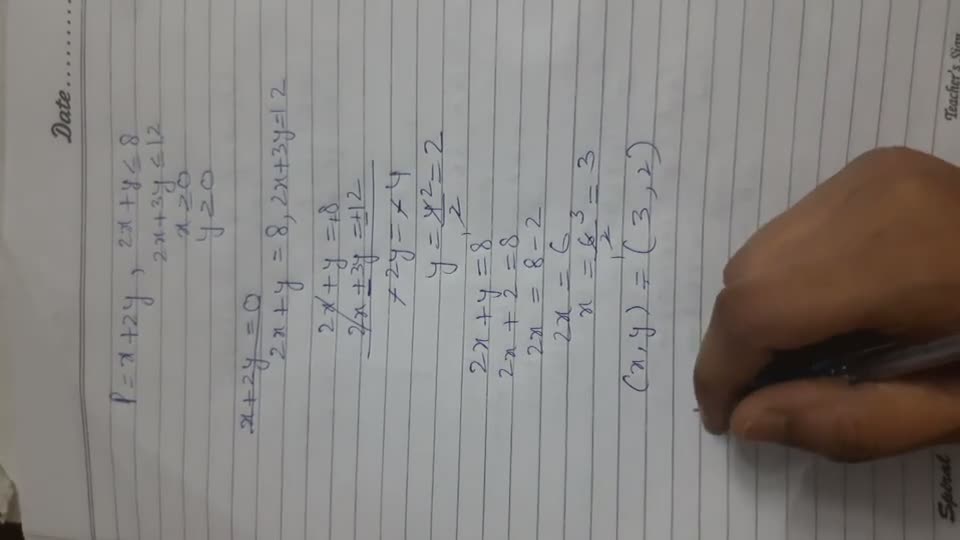 Date..........
P = x + 2y , 2x + y ≤ 8
2x + 3y ≤ 12
x ≥ 0
y ≥ 0
x + 2y = 0
2x + y = 8, 2x + 3y = 12
2x + y = 8
2x + 3y = 12
-2y = -4
y = 4/2 2 = 2
2x + y = 8
2x + 2 = 8
2x = 8 - 2
2x = 6
x = 6/2 3 = 3
(x, y) = (3, 2)
Spiral
Teacher's Sign